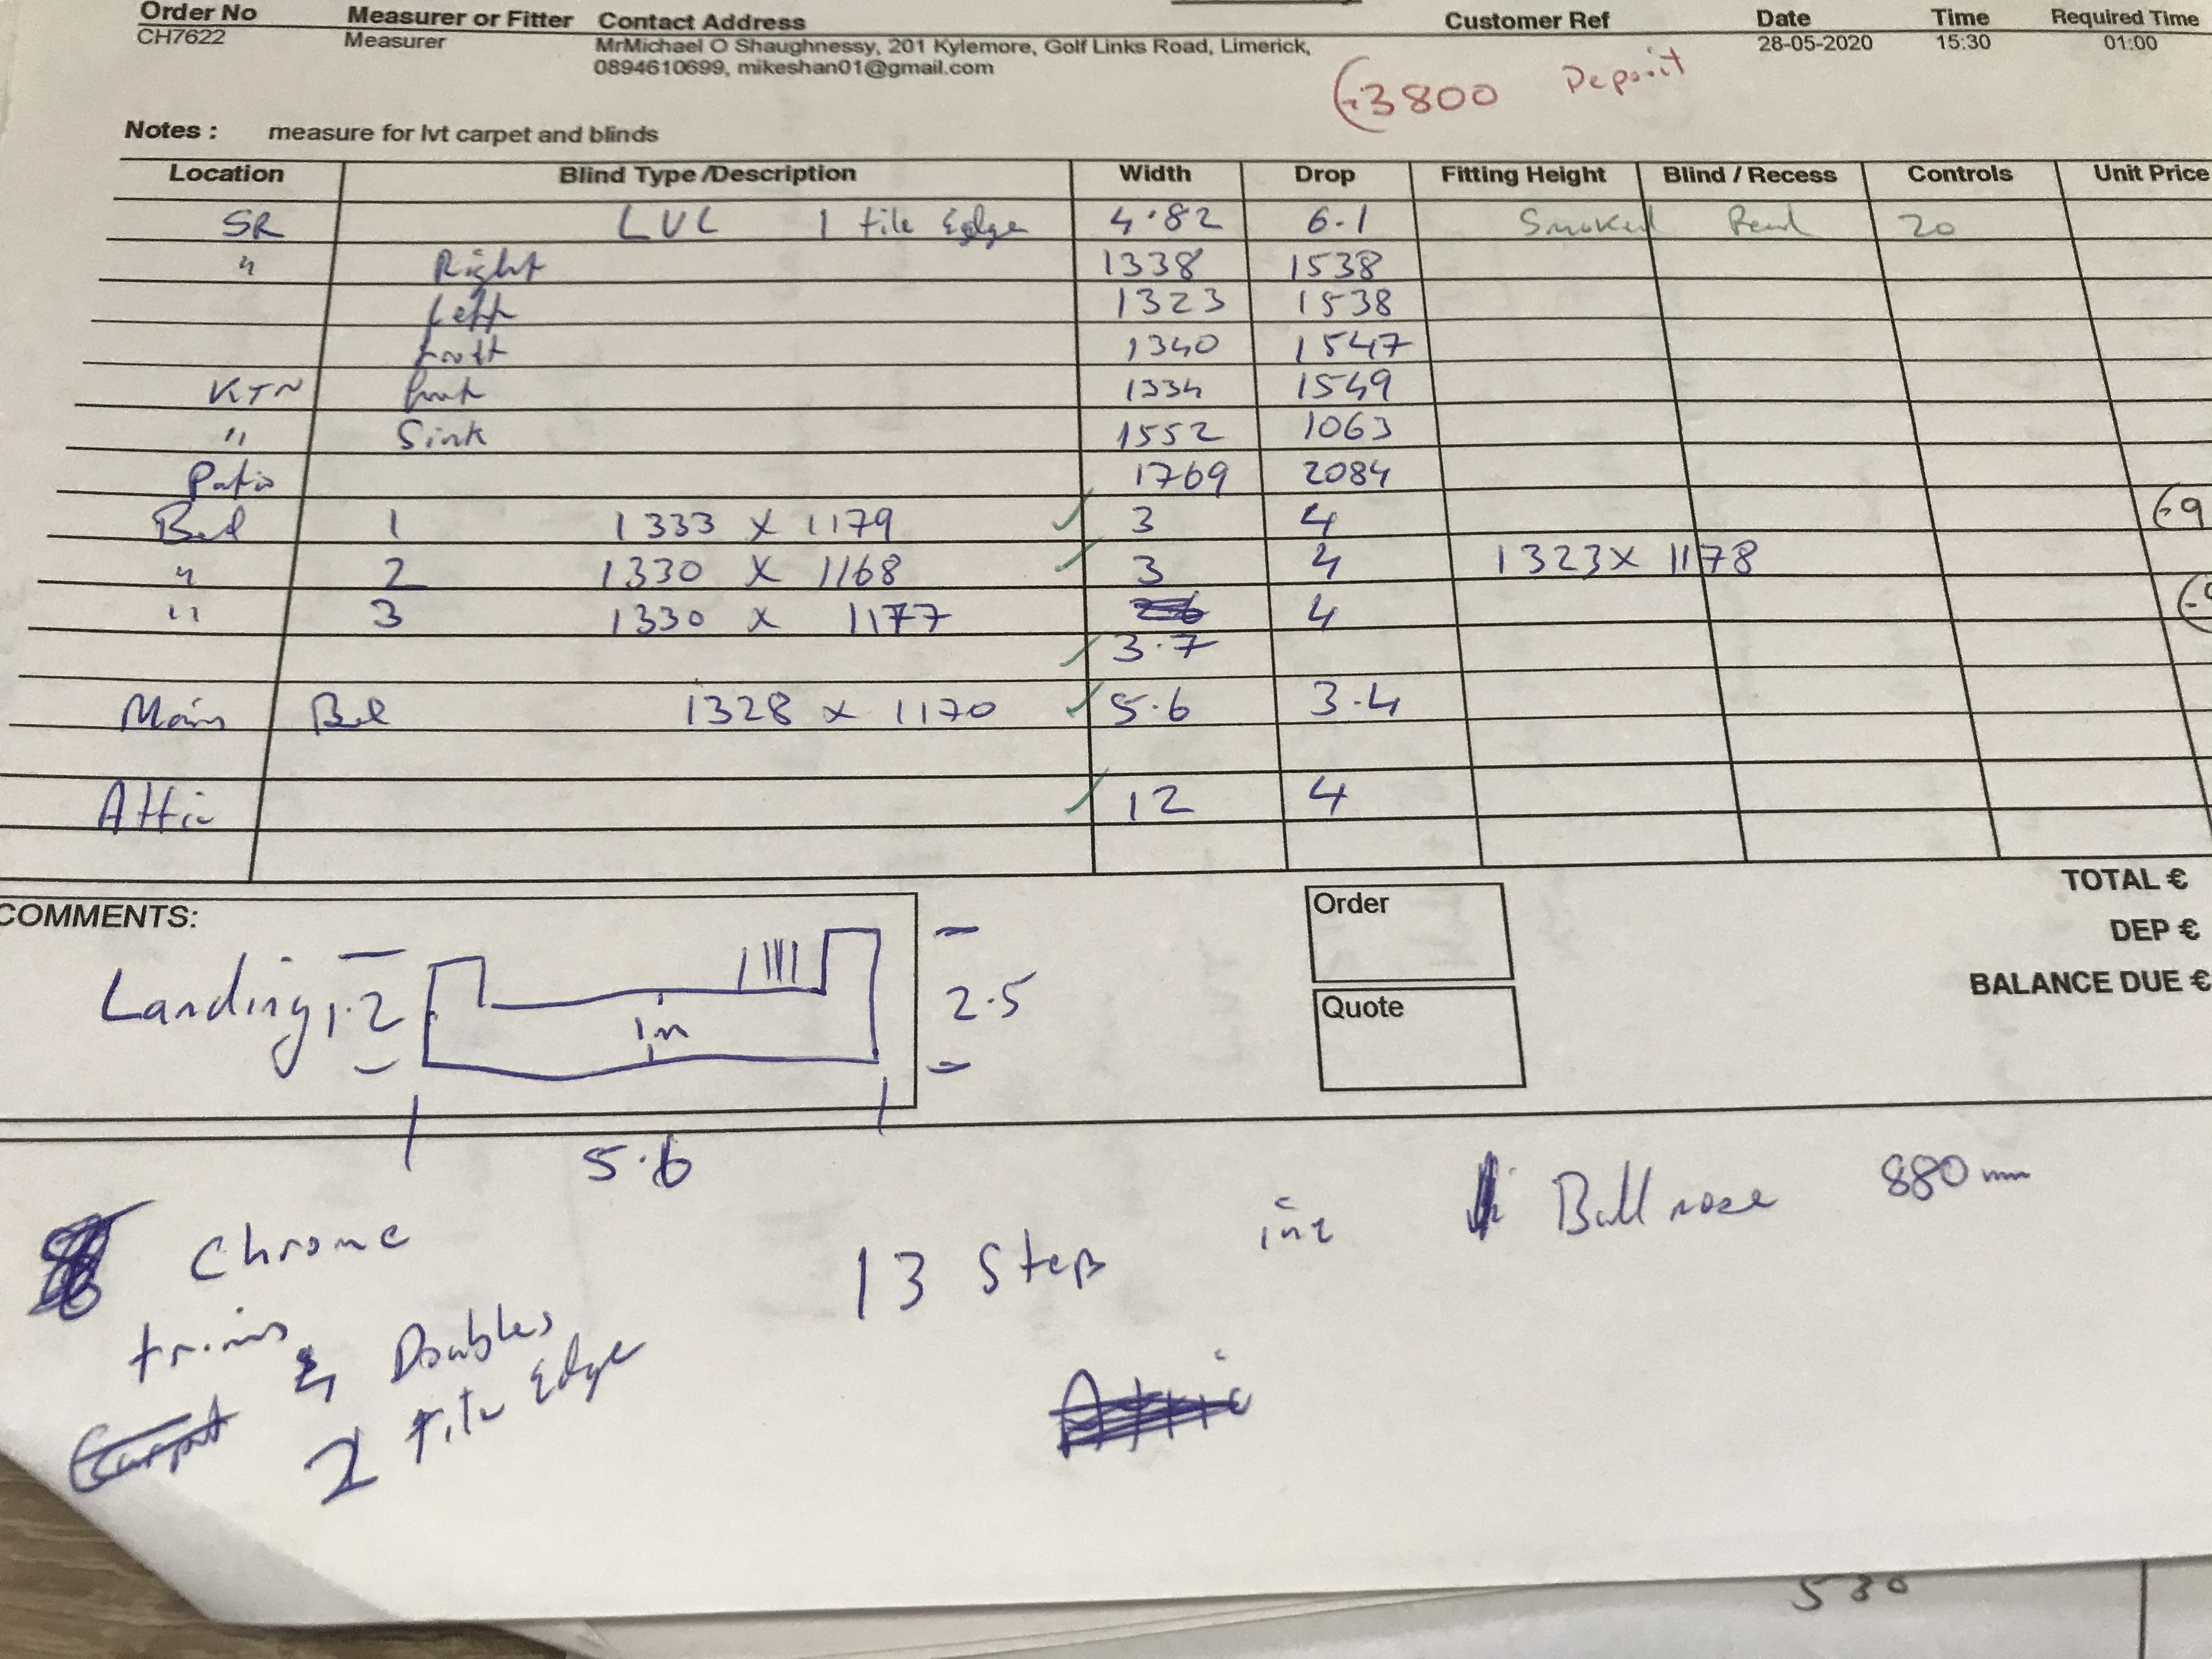 Order No Measurer or Fitter Contact Address Customer Ref Date Time Required Time
CH7622 Measurer MrMichael O Shaughnessy, 201 Kylemore, Golf Links Road, Limerick, 28-05-2020 15:30 01:00
0894610699, mikeshan01@gmail.com
€3800 Deposit
Notes : measure for lvt carpet and blinds
Location Blind Type /Description Width Drop Fitting Height Blind / Recess Controls Unit Price
SR LVL 1 tile Edge 4.82 6.1 Smoked 20
" Right 1338 1538
Left 1323 1538
1340 1547
KTN 1334 1549
" Sink 1552 1063
Patio 1769 2084
Bed 1 1333 x 1179 3 4 €9
" 2 1330 x 1168 3 4 1323 x 1178
" 3 1330 x 1177 4
3.7
Main Bed 1328 x 1170 5.6 3.4
Attic 12 4
TOTAL €
COMMENTS: Order
DEP €
BALANCE DUE €
Landing 1.2 1m 2.5
Quote
5.6
Chrome 13 Steps inc Bull nose 880mm
trims & Doubles
2 Tile Edge
Attic
530